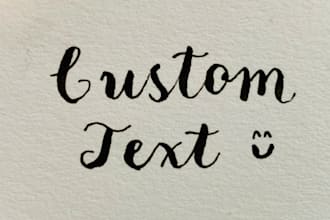 Custom
Text